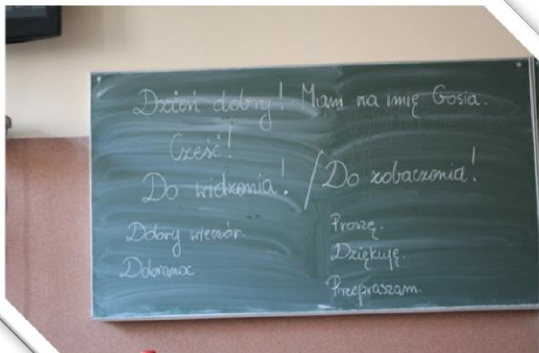 Dzień dobry! Mam na imię Gosia.
Cześć!
Do widzenia! / Do zobaczenia!
Dobry wieczór.
Dobranoc
Proszę.
Dziękuję.
Przepraszam.